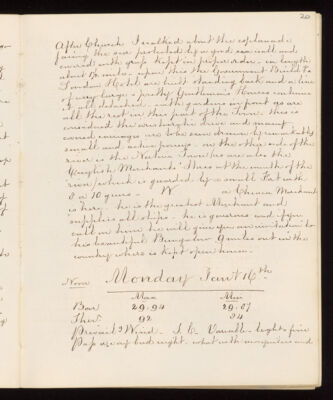 20
After Church I walked about the esplanade
facing the sea protected by a good sea wall and
covered with grass kept in proper order - in length
about ½ mile - upon this the Government Build.gs
London Hotel are built standing back and a line
of very large & pretty Gentlemen's Houses continue
all detached - with gardens in front as are
all the rest in this part of the Town. this is
considered the aristocratic drive and many
carriages are to be seen drawn by remarkably
small and active ponys - on the other side of the
river is the Native Town, as are also the
English Merchants' Stores at the mouth of the
river, which is guarded by a small Fort with
8 or 10 guns - W a Chinese Merchant
is here - he is the greatest Merchant and
supplies all ships - he is generous and if you
call on him he will give you an invitation to
his beautiful Bungalow 4 miles out in the
country where is kept open house.
Noon Monday Jan.y 16th
Max Min
Bar. 29.94 29.87
Ther. 92 84
Prevail.g Wind - S.E. Variable - light & fine
Pass away bad night. what with mosquitoes and